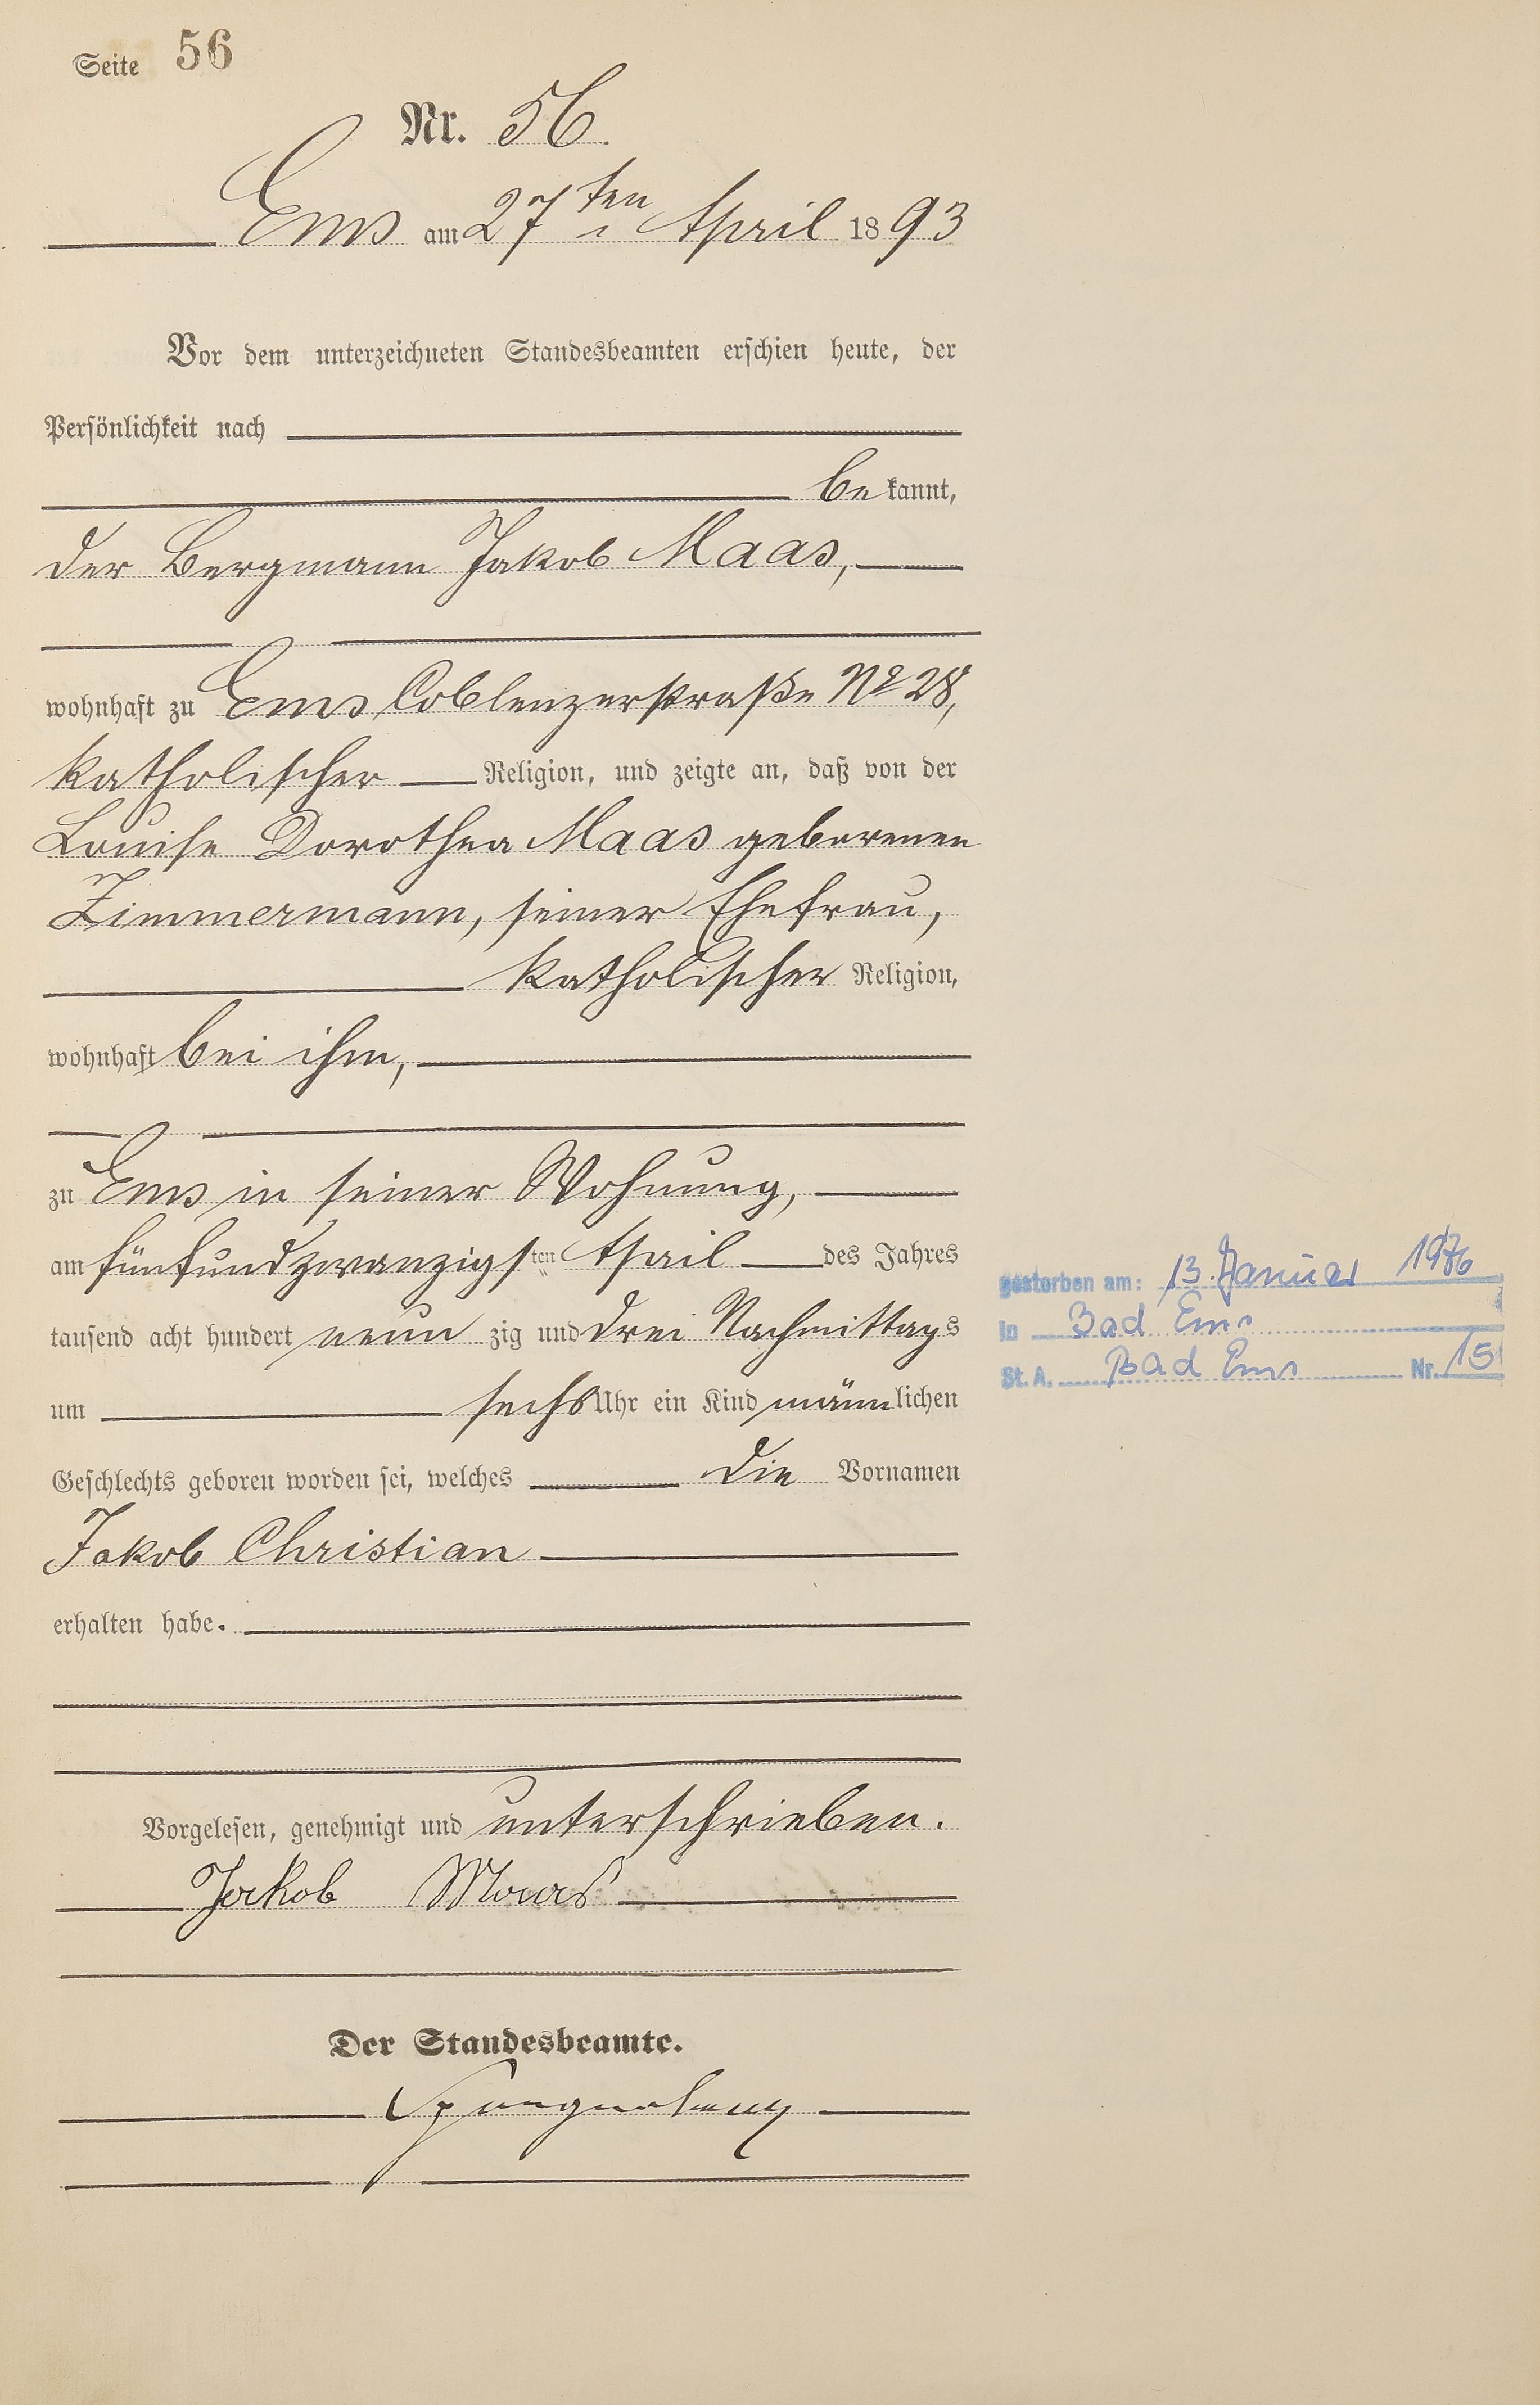 Seite 56
Nr. 56.
Ems am 27ten April 1893
Vor dem unterzeichneten Standesbeamten erschien heute, der
Persönlichkeit nach
bekannt,
der Bergmann Jakob Maas,
wohnhaft zu Ems, Coblenzerstraße No 28,
katholischer Religion, und zeigte an, daß von der
Louise Dorothea Maas geborenen
Zimmermann, seiner Ehefrau,
katholischer Religion,
wohnhaft bei ihm,
zu Ems in seiner Wohnung,
am fünfundzwanzigsten April des Jahres
tausend acht hundert neunzig und drei Nachmittags
um sechs Uhr ein Kind männlichen
Geschlechts geboren worden sei, welches die Vornamen
Jakob Christian
erhalten habe.
Vorgelesen, genehmigt und unterschrieben.
Jakob Maas
Der Standesbeamte.
gestorben am: 13. Januar 1976
in Bad Ems
St. A. Bad Ems Nr. 15